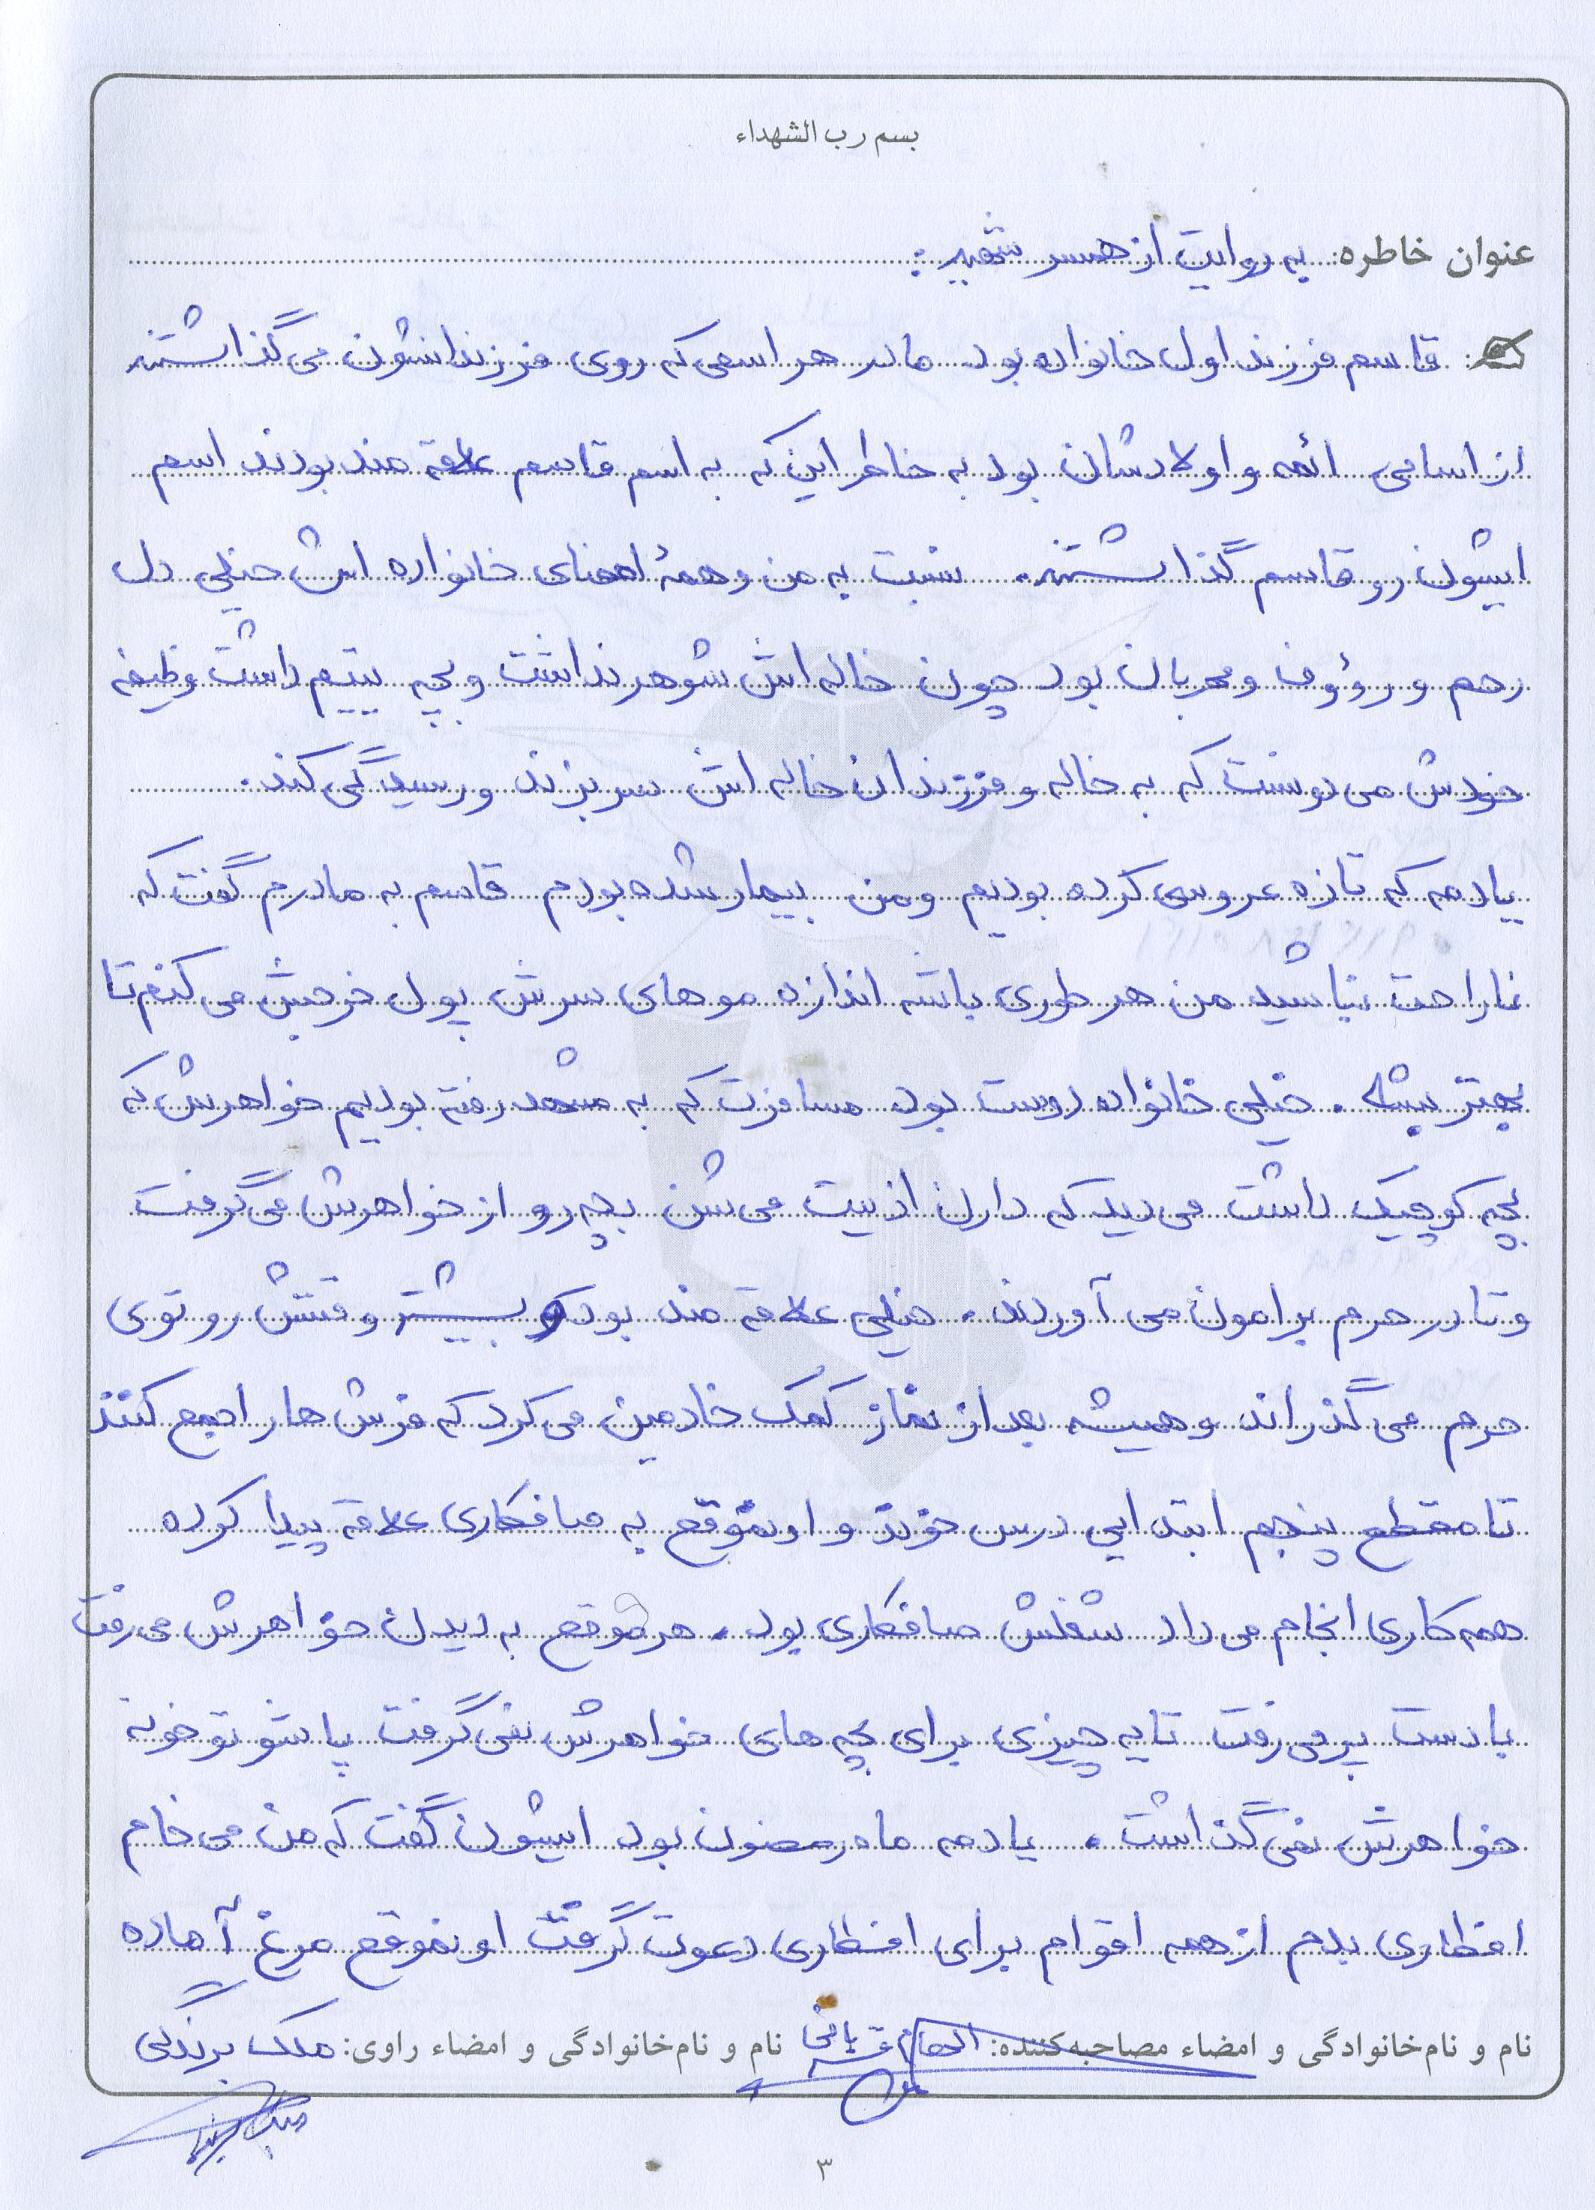 بسم رب الشهداء
عنوان خاطره: به روایت از همسر شهید :
قاسم فرزند اول خانواده بود مادر هر اسمی که روی فرزندانشون می گذاشتند
از اسامی ائمه و اولادشان بود به خاطر این که به اسم قاسم علاقه مند بودند اسم
ایشون رو قاسم گذاشتند. نسبت به من و همهٔ اعضای خانواده اش خیلی دل
رحم و رؤوف و مهربان بود چون خاله اش شوهر نداشت و بچه یتیم داشت وظیفه
خودش می دونست که به خاله و فرزندان خاله اش سر بزند و رسیدگی کند.
یادمه که تازه عروسی کرده بودیم و من بیمار شده بودم قاسم به مادرم گفت که
ناراحت نباشید من هر طوری باشه اندازه موهای سرش پول خرجش می کنم تا
بهتر بشه . خیلی خانواده دوست بود مسافرت که به مشهد رفته بودیم خواهرش که
بچه کوچیک داشت می دید که دارن اذییت می شن بچه رو از خواهرش می گرفت
و تا در حرم برامون می آوردند . خیلی علاقه مند بود که بیشتر وقتش رو توی
حرم می گذراند و همیشه بعد از نماز کمک خادمین می کرد که فرش ها را جمع کنند
تا مقطع پنجم ابتدایی درس خوند و اونموقع به صافکاری علاقه پیدا کرده
همه کاری انجام می داد شغلش صافکاری بود . هر موقع به دیدن خواهرش می رفت
با دست پر می رفت تا یه چیزی برای بچه های خواهرش نمی گرفت پاشو تو خونه
خواهرش نمی گذاشت . یادمه ماه رمضون بود ایشون گفت که من می خام
افطاری بدم از همه اقوام برای افطاری دعوت گرفت اونموقع مرغ آماده
نام و نام‌خانوادگی و امضاء مصاحبه‌کننده: الهام قربانی نام و نام‌خانوادگی و امضاء راوی: ملک برندگی
۳